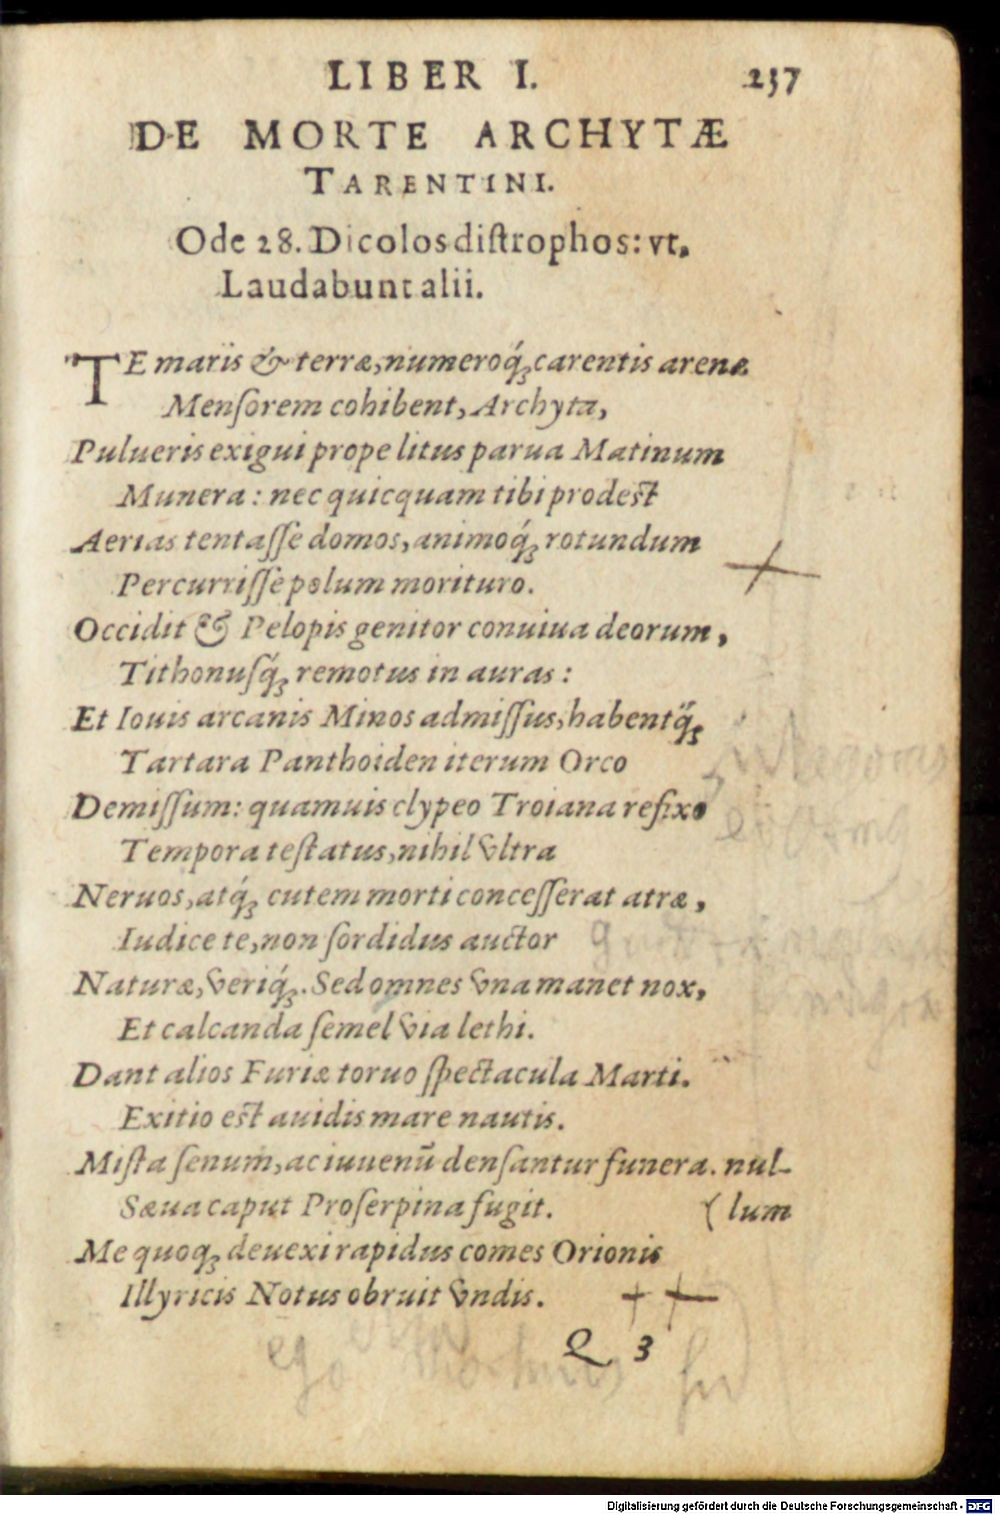 LIBER I. 237
DE MORTE ARCHYTÆ
TARENTINI.
Ode 28. Dicolos distrophos: vt,
Laudabunt alii.
TE maris & terræ, numeroq́; carentis arenæ
Mensorem cohibent, Archyta,
Pulueris exigui prope litus parua Matinum
Munera: nec quicquam tibi prodest
Aerias tentasse domos, animoq́; rotundum
Percurrisse polum morituro.
Occidit & Pelopis genitor conuiua deorum,
Tithonusq́; remotus in auras:
Et Iouis arcanis Minos admissus, habentq́;
Tartara Panthoiden iterum Orco
Demissum: quamuis clypeo Troiana refixo
Tempora testatus, nihil vltra
Neruos, atq́; cutem morti concesserat atræ,
Iudice te, non sordidus auctor
Naturæ, veriq́;. Sed omnes vna manet nox,
Et calcanda semel via lethi.
Dant alios Furiæ toruo spectacula Marti.
Exitio est auidis mare nautis.
Mista senum, ac iuuenū densantur funera. nul-
Sæua caput Proserpina fugit. (lum
Me quoq; deuexi rapidus comes Orionis
Illyricis Notus obruit vndis.
Q 3
ego
Digitalisierung gefördert durch die Deutsche Forschungsgemeinschaft - DFG